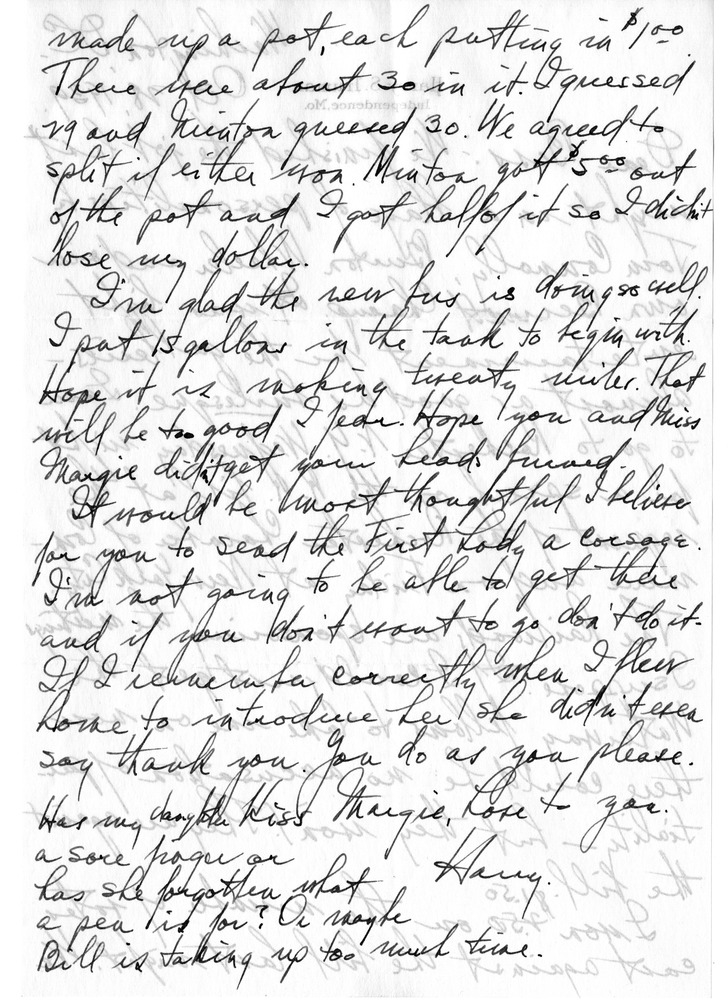 made up a pot, each putting in $1.00.
There were about 30 in it. I guessed
29 and Minton guessed 30. We agreed to
split if either won. Minton got $5.00 out
of the pot and I got half of it so I didn't
lose my dollar.
I'm glad the new bus is doing so well.
I put 15 gallons in the tank to begin with.
Hope it is making twenty miles. That
will be too good I fear. Hope you and Miss
Margie didn't get your heads turned.
It would be most thoughtful I believe
for you to send the First Lady a corsage.
I'm not going to be able to get there
and if you don't want to go don't do it.
If I remember correctly when I flew
home to introduce her she didn't even
say thank you. You do as you please.
Kiss Margie, Love to you.
Harry.
Has my daughter
a sore finger or
has she forgotten what
a pen is for? Or maybe
Bill is taking up too much time.